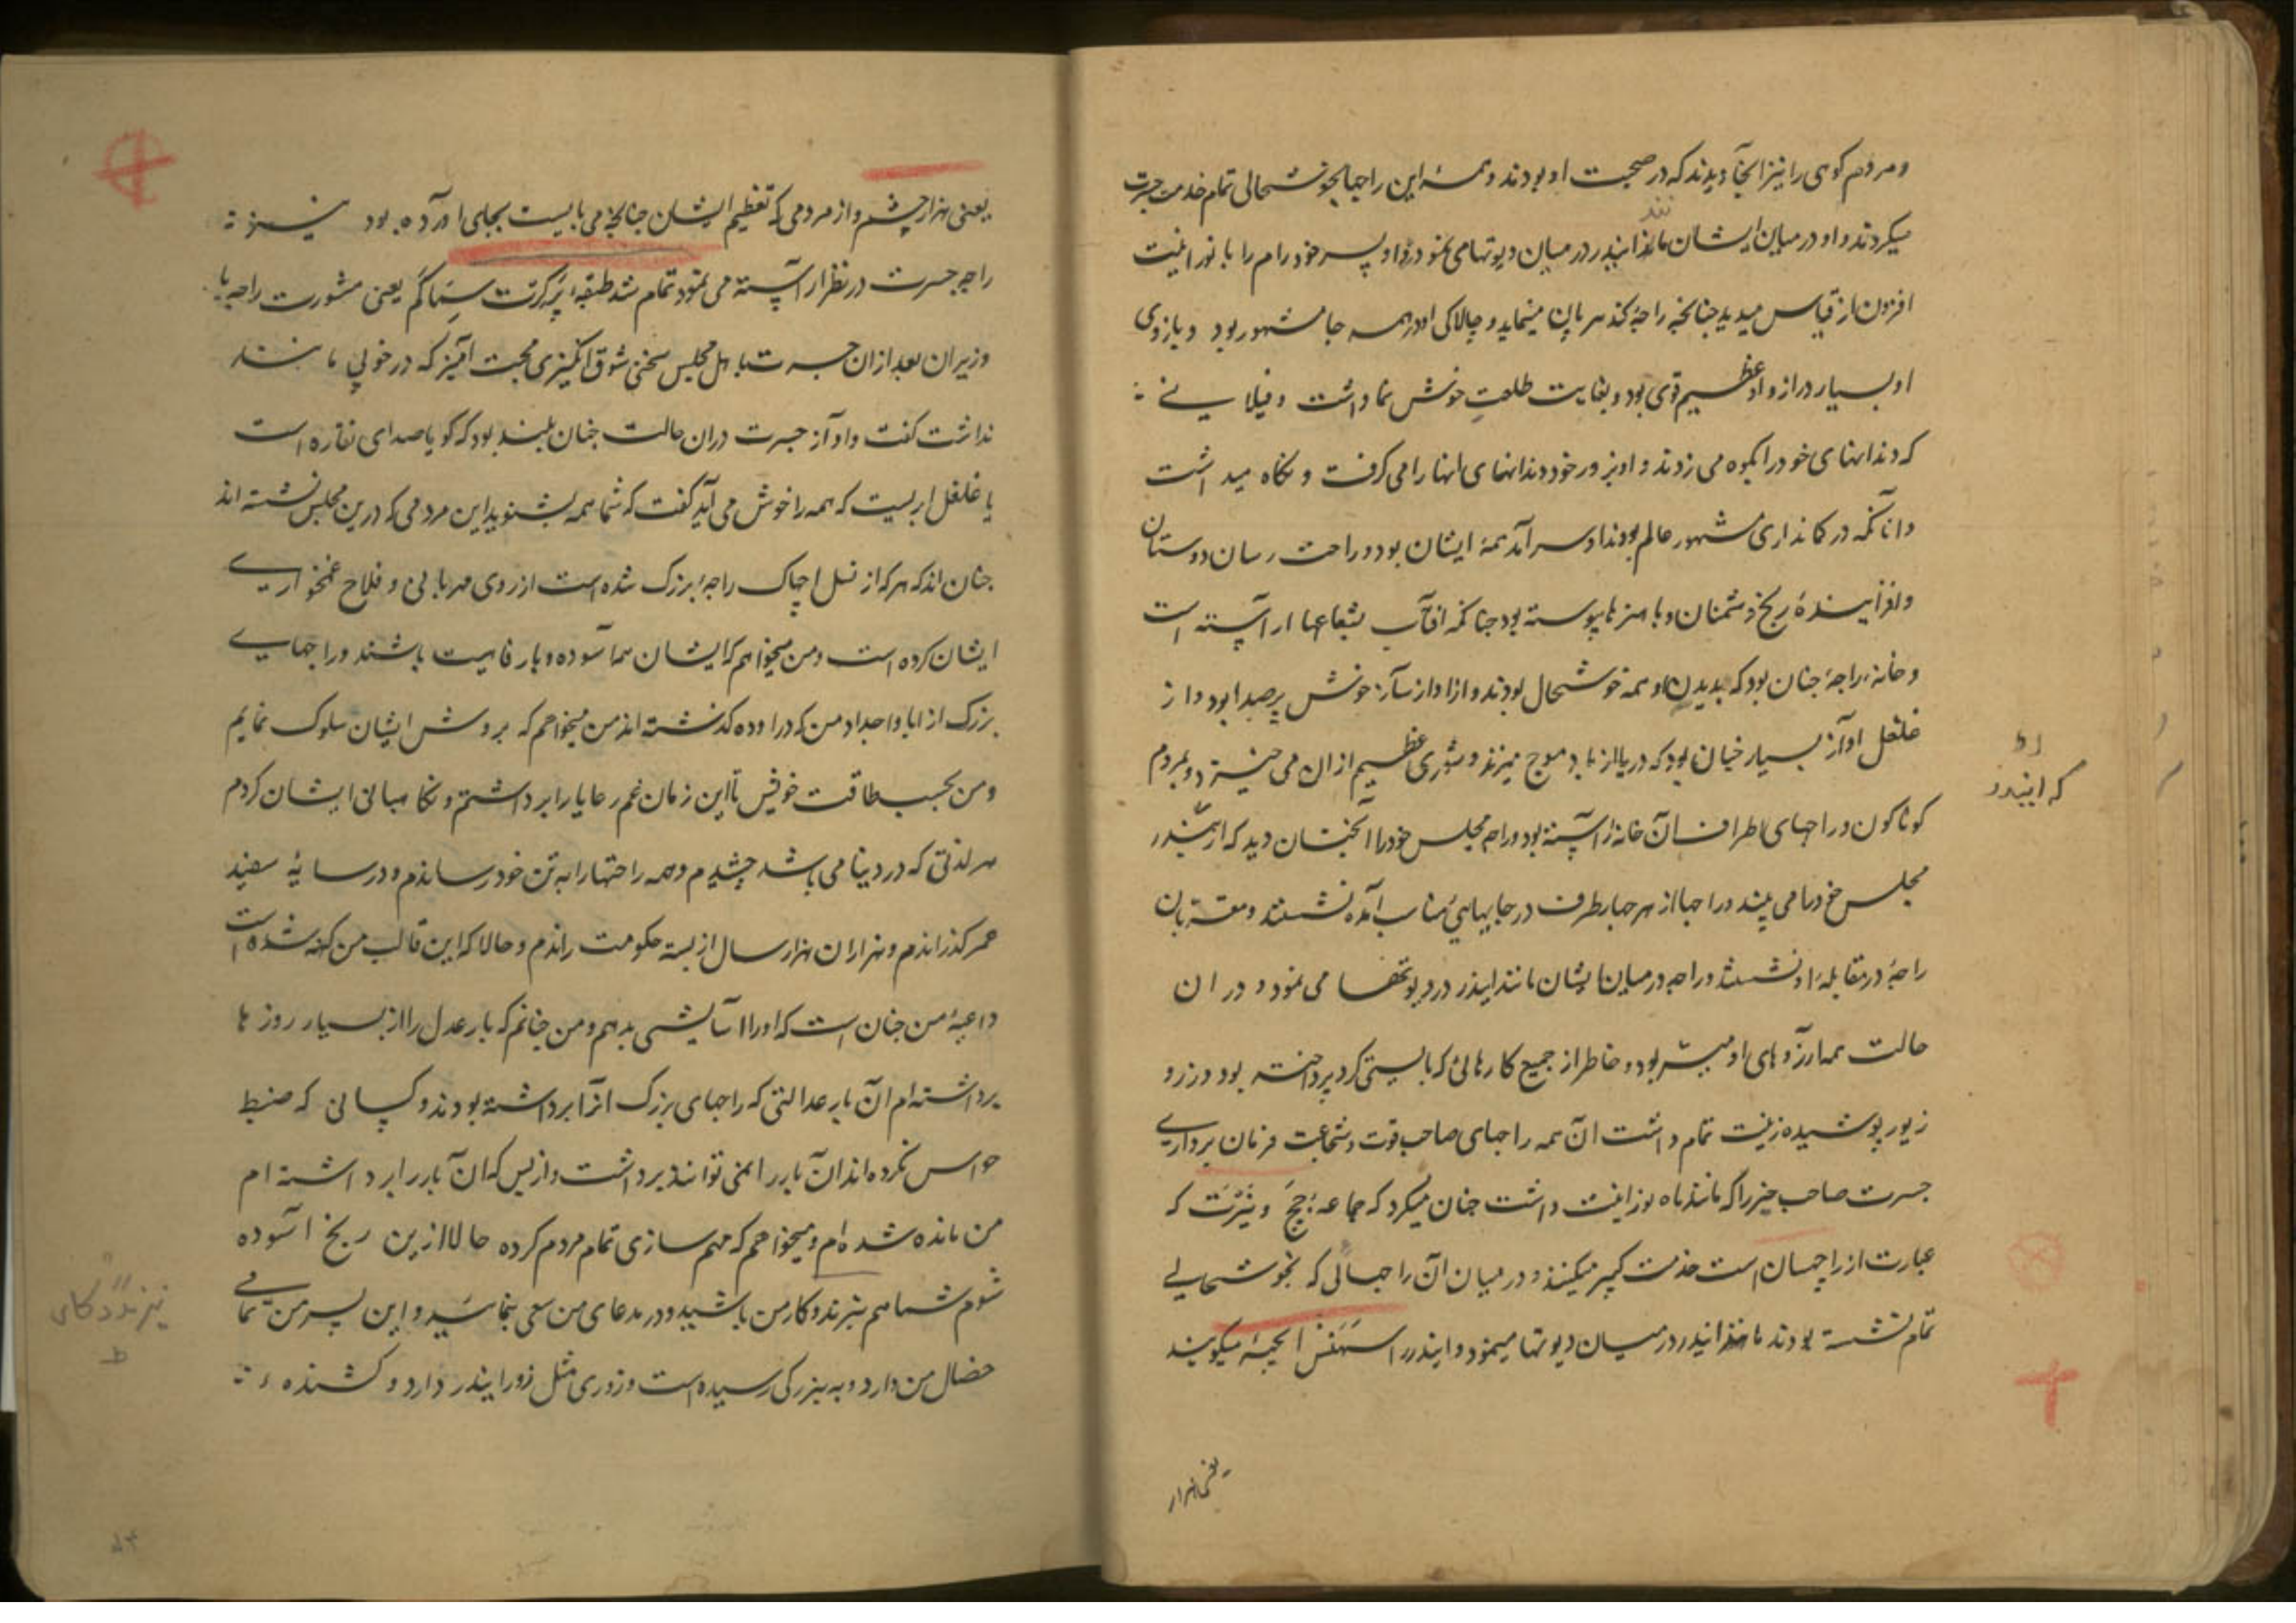 ومردم کوهی را نیز انجا دیدند که در صحبت او بودند و همهٔ این راجها بخوشحالی تمام خدمت جسرت
میکردند و او در میان ایشان مانند ایندر در میان دیوتها می نمود و او پسر خود رام را با نورانیت
افزون از قیاس میدید چنانچه راجهٔ کندهربان مینماید و چالاکی او در همه جا مشهور بود و بازوی
او بسیار دراز و او عظیم قوی بود و بغایت طلعت خوش نما داشت و فیلانی
که دندانهای خود را بکوه می زدند و او بزور خود دندانهای انها را می گرفت و نگاه میداشت
وانانکه در کمانداری مشهور عالم بودند او سرآمد همهٔ ایشان بود و راحت رسان دوستان
وافزایندهٔ رنج دشمنان و با هنرها پیوسته بود چنانکه افتاب بشعاعها اراسته است
وخانهٔ راجه چنان بود که بدیدن او همه خوشحال بودند و از اواز ساز خوش پرصدا بود و از
غلغل اواز بسیار چنان بود که دریا از باد موج میزند و شوری عظیم ازان می خیزد و بمردم
کوناکون و راجهای اطراف ان خانه اراسته بود و رام مجلس خود را انچنان دید که ایندر
مجلس خود را می بیند و راجها از هر چهار طرف در جاییهای مناسب آمده نشستند و مقربان
راجه در مقابلهٔ او نشستند و راجه در میان ایشان مانند ایندر در دیوتها می نمود و در ان
حالت همه ارزوهای او میسر بود و خاطر از جمیع کارهائی که بایستی کرد پرداخته بود و زر و
زیور پوشیده زینت تمام داشت ان همه راجهای صاحب قوت و شجاعت فرمان برداری
جسرت صاحب خیر را که مانند ماه نورانیت داشت چنان میکرد که جماعهٔ جچ و نیرت که
عبارت از راچهسان است خدمت کبیر میکنند و در میان ان راجهائی که بخوشحالی
تمام نشسته بودند مانند ایندر در میان دیوتها مینمود و ایندر را سهنس اچهه میکویند
یعنی هزار
که ایندر
یعنی هزار چشم و از مردمی که تعظیم ایشان چنانچه می بایست بجای اورده بود نیز
راجه جسرت در نظر اراسته می نمود تمام شد طبقهٔ پرکرت سماکم یعنی مشورت راجه با
وزیران بعد ازان جسرت با اهل مجلس سخنی شوق انکیزی محبت آمیز که در خوبی مانند
نداشت کفت و اواز جسرت دران حالت چنان بلند بود که کویا صدای نقاره است
یا غلغل ابریست که همه را خوش می آید گفت که شما همه بشنوید این مردمی که درین مجلس نشسته اند
چنان اند که هر که از نسل اچهاک راجهٔ بزرک شده است از روی مهربانی و فلاح غمخواری
ایشان کرده است ومن میخواهم که ایشان هم آسوده و با رفاهیت باشند و راجهای
بزرک از ابا و اجداد من که در اوده گذشته اند من میخواهم که بروش ایشان سلوک نمایم
ومن بحسب طاقت خویش تا این زمان غم رعایا را برداشتم و نکاهبانی ایشان کردم
هر لذتی که در دنیا می باشد چشیدم و همه راحتها را به تن خود رساندم و در سایهٔ سفید
عمر گذراندم و هزاران هزار سال حکومت راندم و حالا که این قالب من کهنه شده است
داعیهٔ من چنان است که او را آسایشی بدهم و من چنانم که بار عدل را از بسیار روزها
برداشته ام آن بار عدالتی که راجهای بزرک آنرا برداشته بودند و کسانی که ضبط
حواس نکرده اند آن بار را نمی توانند برداشت و از بس که آن بار را برداشته ام
من مانده شده ام و میخواهم که مهم سازی تمام مردم کرده حالا ازین رنج آسوده
شوم شما هم در کار من باشید و در مدعای من سعی بنمایید و این پسر من تمامی
خصال من دارد و به بزرکی رسیده است و زوری مثل زور ایندر دارد و کشنده